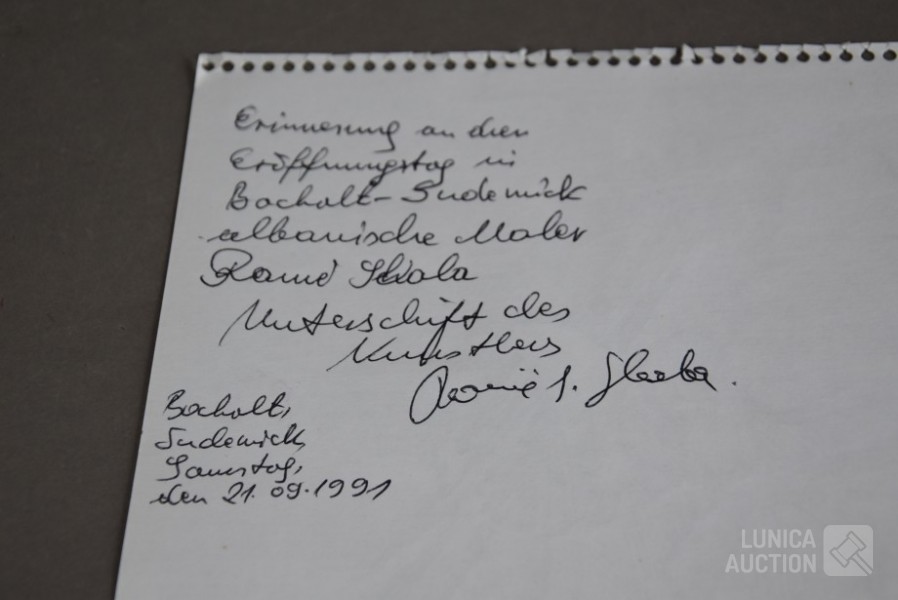 Erinnerung an den
Eröffnungstag in
Bocholt-Suderwick
albanische Maler
Ramé
Unterschift des
Künstlers
Bocholt,
Suderwick,
Samstag,
den 21.09.1991
LUNICA
AUCTION